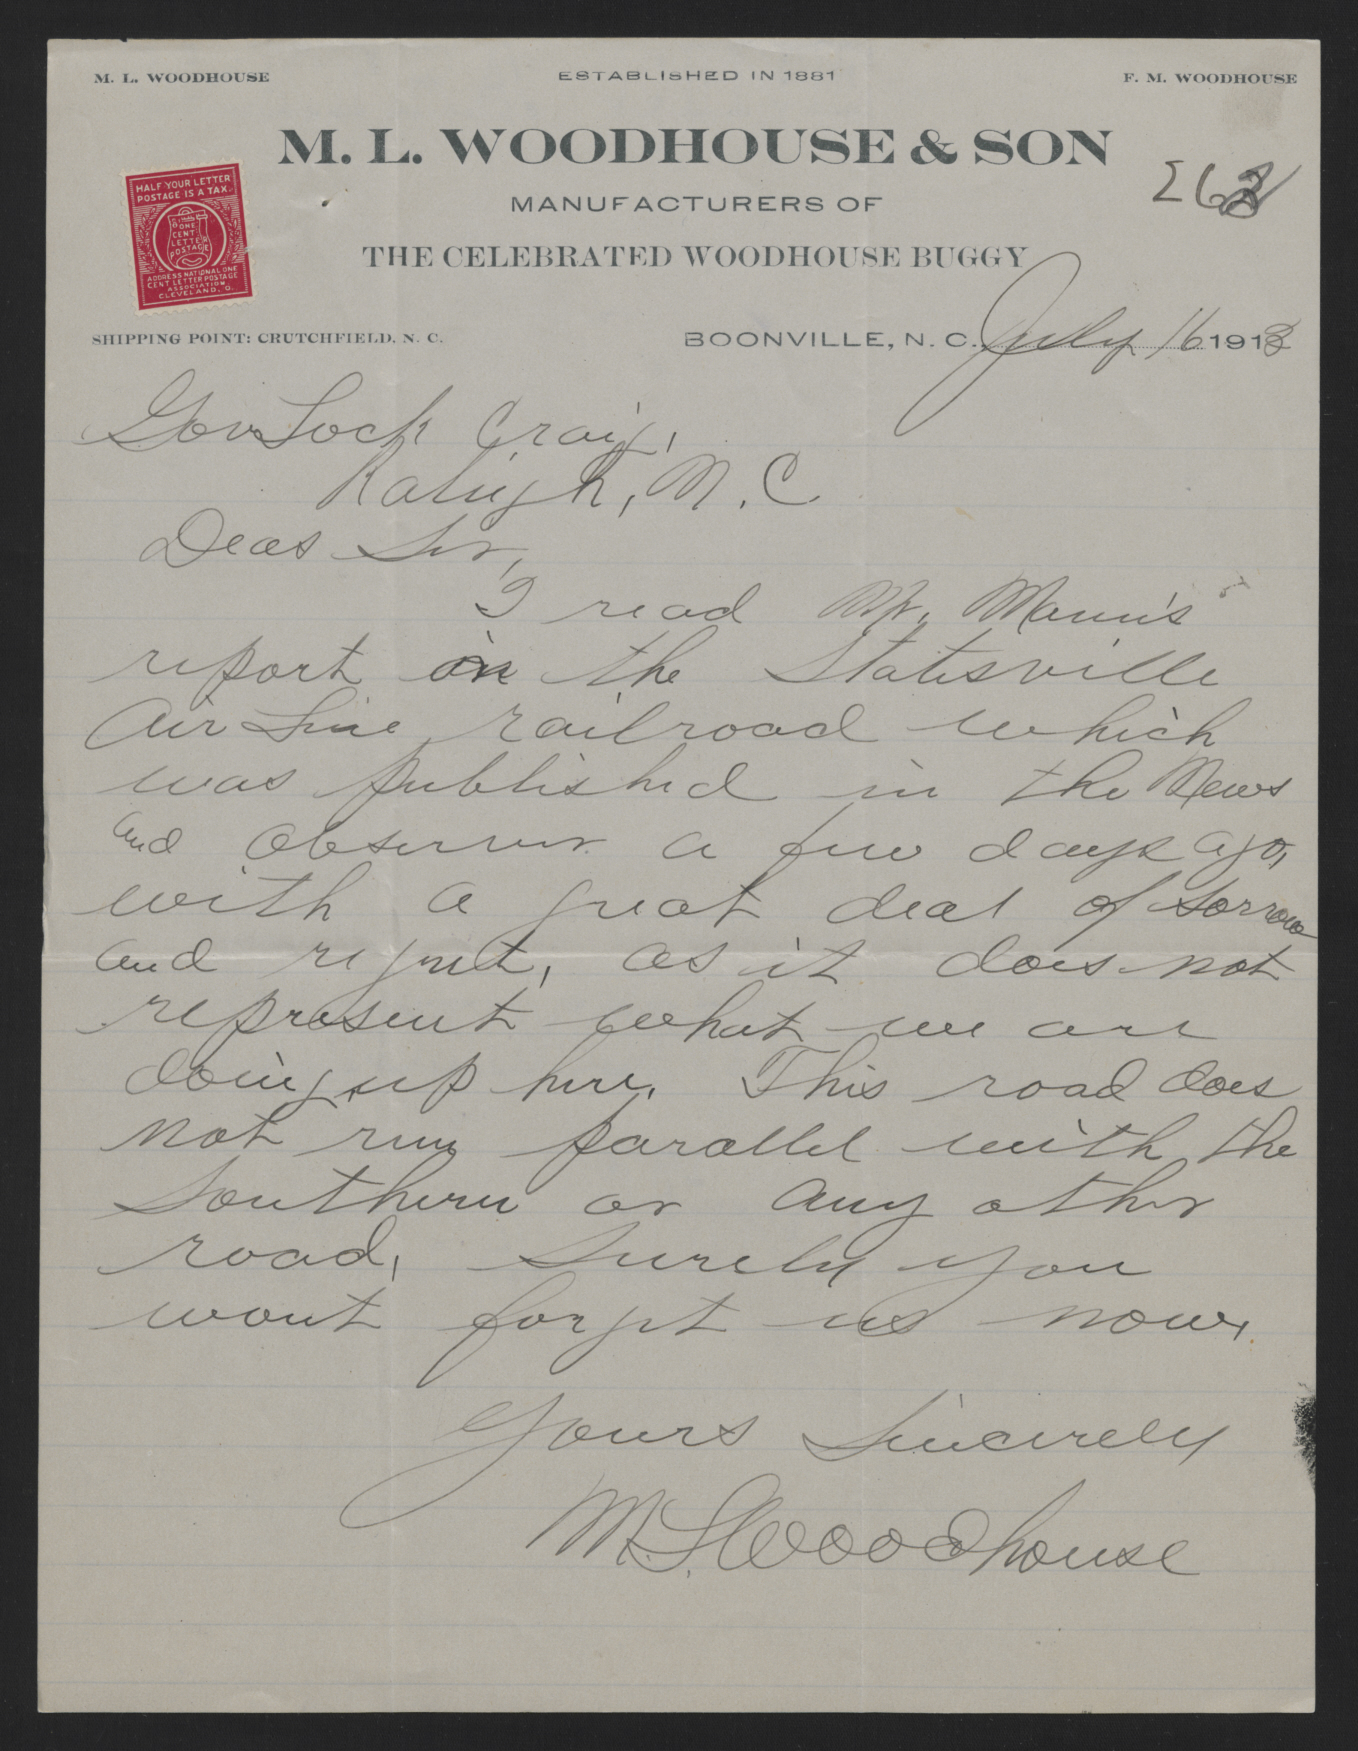 M. L. WOODHOUSE
ESTABLISHED IN 1881
F. M. WOODHOUSE
M. L. WOODHOUSE & SON
MANUFACTURERS OF
THE CELEBRATED WOODHOUSE BUGGY
HALF YOUR LETTER
POSTAGE IS A TAX.
ONE
CENT
LETTER
POSTAGE
ADDRESS NATIONAL ONE
CENT LETTER POSTAGE
ASSOCIATION
CLEVELAND, O.
SHIPPING POINT: CRUTCHFIELD, N. C.
BOONVILLE, N. C., July 16 191
Gov Lock Craig,
Raleigh, N. C.
Dear Sir,
I read Mr. Mann's
report on the Statesville
Air Line railroad which
was published in the News
and Observer a few days ago,
with a great deal of sorrow
and regret, as it does not
represent what we are
doing up here. This road does
not run parallel with the
Southern or any other
road, Surely you
wont forget us now.
Yours Sincerely
M. L. Woodhouse